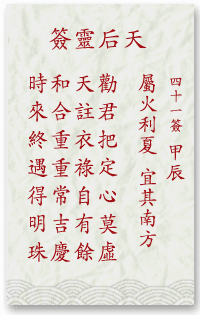 天后靈簽
四十一簽 甲辰
屬火利夏 宜其南方
勸君把定心莫虛
天註衣祿自有餘
和合重重常吉慶
時來終遇得明珠